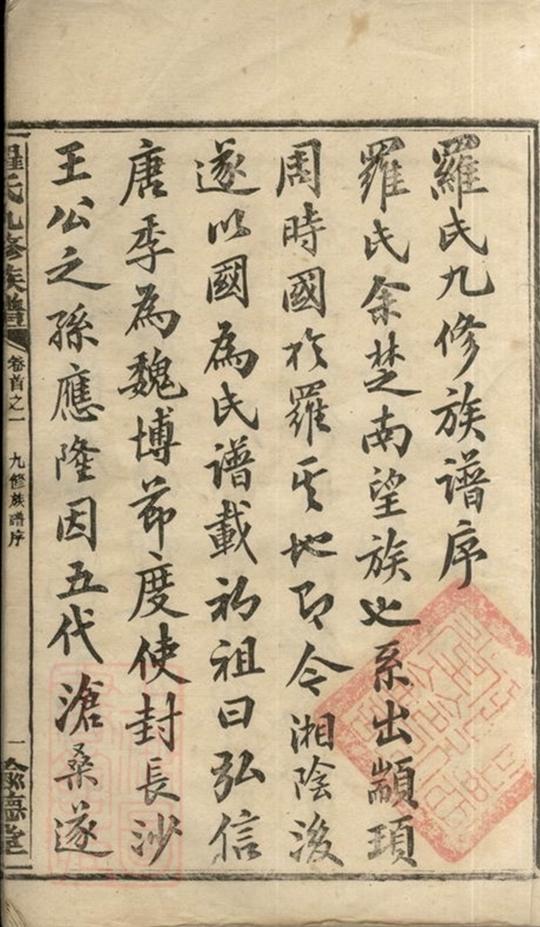 羅氏九修族譜序
羅氏余楚南望族也系出顓頊
周時國於羅其地即今湘陰後
遂以國為氏譜載初祖曰弘信
唐季為魏博節度使封長沙
王公之孫應隆因五代滄桑遂
羅氏九修族譜
卷首之一 九修族譜序
一